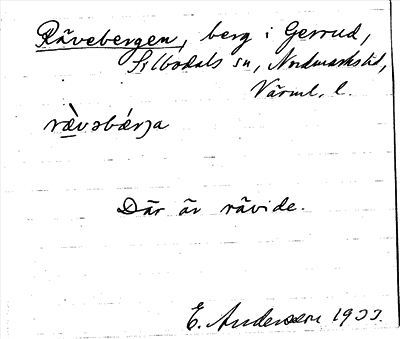 Rävebergen, berg i Gerrud,
Silbodals sn, Nordmarks hd,
Värml. l.
ræ̀vəbǽrja
Där är rävide.
E. Andersson 1933.